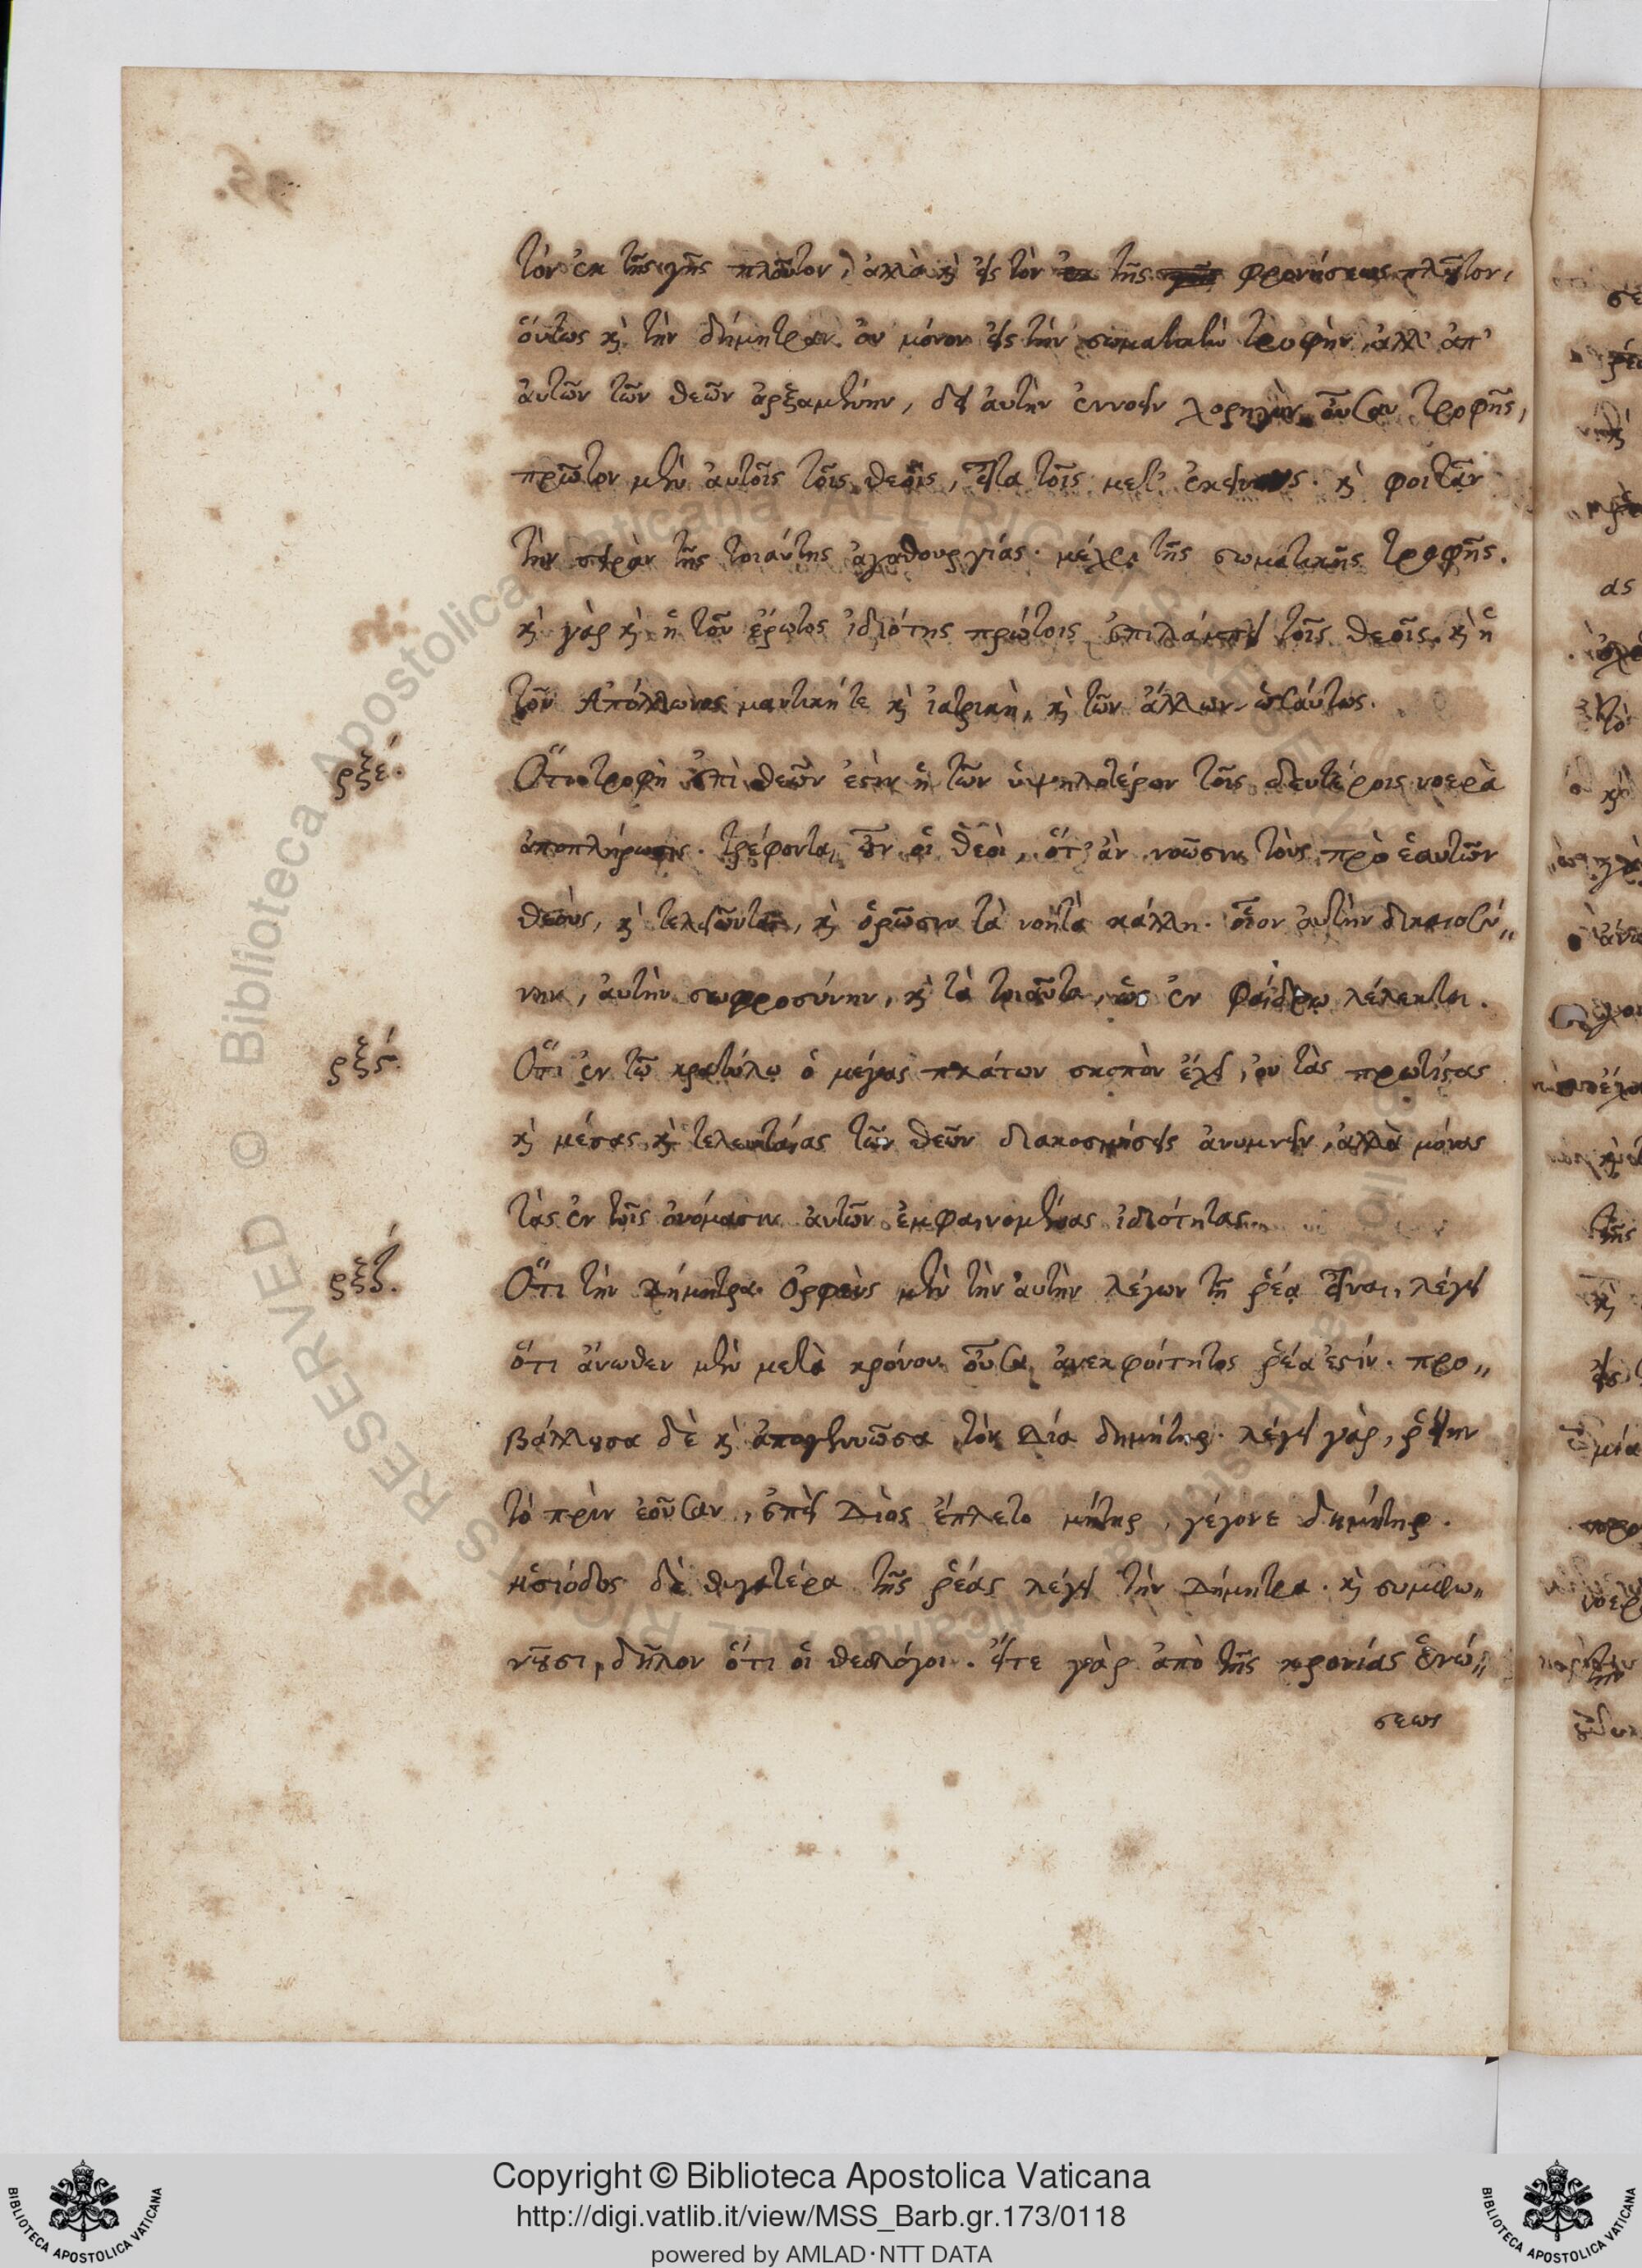 τὸν ἐκ τῆς γῆς πλοῦτον, ἀλλὰ καὶ εἰς τὸν ἐκ τῆς φρονήσεως πλοῦτον,
οὕτως καὶ τὴν δήμητραν οὐ μόνον εἰς τὴν σωματικὴν τροφὴν, ἀλλ' ἀπ'
ἀυτῶν τῶν θεῶν ἀρξαμένην, δεῖ ἀυτὴν ἐννοεῖν χορηγὸν οὖσαν τροφῆς,
πρῶτον μὲν ἀυτοῖς τοῖς θεοῖς, εἶτα τοῖς μετ' ἐκείνους. καὶ φοιτᾶν
τὴν σειρὰν τῆς τοιαύτης ἀγαθουργίας. μέχρι τῆς σωματικῆς τροφῆς.
καὶ γὰρ καὶ ἡ τοῦ ἔρωτος ἰδιότης πρώτοις ἐπιλάμπει τοῖς θεοῖς, καὶ ἡ
τοῦ Ἀπόλλωνος μαντική τε καὶ ἰατρικὴ, καὶ τῶν ἄλλων ὡσάυτως.
ρξε΄. Ὅτι τροφὴ ἐπὶ θεῶν ἐστὶν ἡ τῶν ὑψηλοτέρων τοῖς δευτέροις νοερὰ
ἀποπλήρωσις. τρέφονται οὖν οἱ θεοὶ, ὅτ' ἂν νοῶσιν τοὺς πρὸ ἑαυτῶν
θεοὺς, καὶ τελειῶνται, καὶ ὁρῶσιν τὰ νοητὰ κάλλη. οἷον ἀυτὴν δικαιοσύ„
νην, ἀυτὴν σωφροσύνην, καὶ τὰ τοιαῦτα, ὡς ἐν Φαίδρῳ λέλεκται.
ρξς΄. Ὅτι ἐν τῷ κρατύλῳ ὁ μέγας πλάτων σκοπὸν ἔχει, οὐ τὰς πρωτίστας
καὶ μέσας καὶ τελευταίας τῶν θεῶν διακοσμήσεις ἀνυμνεῖν, ἀλλὰ μόνας
τὰς ἐν τοῖς ὀνόμασιν ἀυτῶν ἐμφαινομένας ἰδιότητας.
ρξζ΄. Ὅτι τὴν Δήμητρα Ὀρφεὺς μὲν τὴν ἀυτὴν λέγων τῇ ῥέᾳ εἶναι, λέγει
ὅτι ἄνωθεν μὲν μετὰ κρόνου οὖσα ἀνεκφοίτητος ῥέα ἐστίν. προ„
βάλλουσα δὲ καὶ ἀπογεννῶσα τὸν Δία δημήτηρ. λέγει γὰρ, ῥείην
τὸ πρὶν ἐοῦσαν, ἐπεὶ Διὸς ἔπλετο μήτηρ, γέγονε δημήτηρ.
ἡσίοδος δὲ θυγατέρα τῆς ῥέας λέγει τὴν Δήμητρα. καὶ συμφω„
νοῦσι, δῆλον ὅτι οἱ θεολόγοι. εἴτε γὰρ ἀπὸ τῆς κρονίας ἑνώ„
σεως